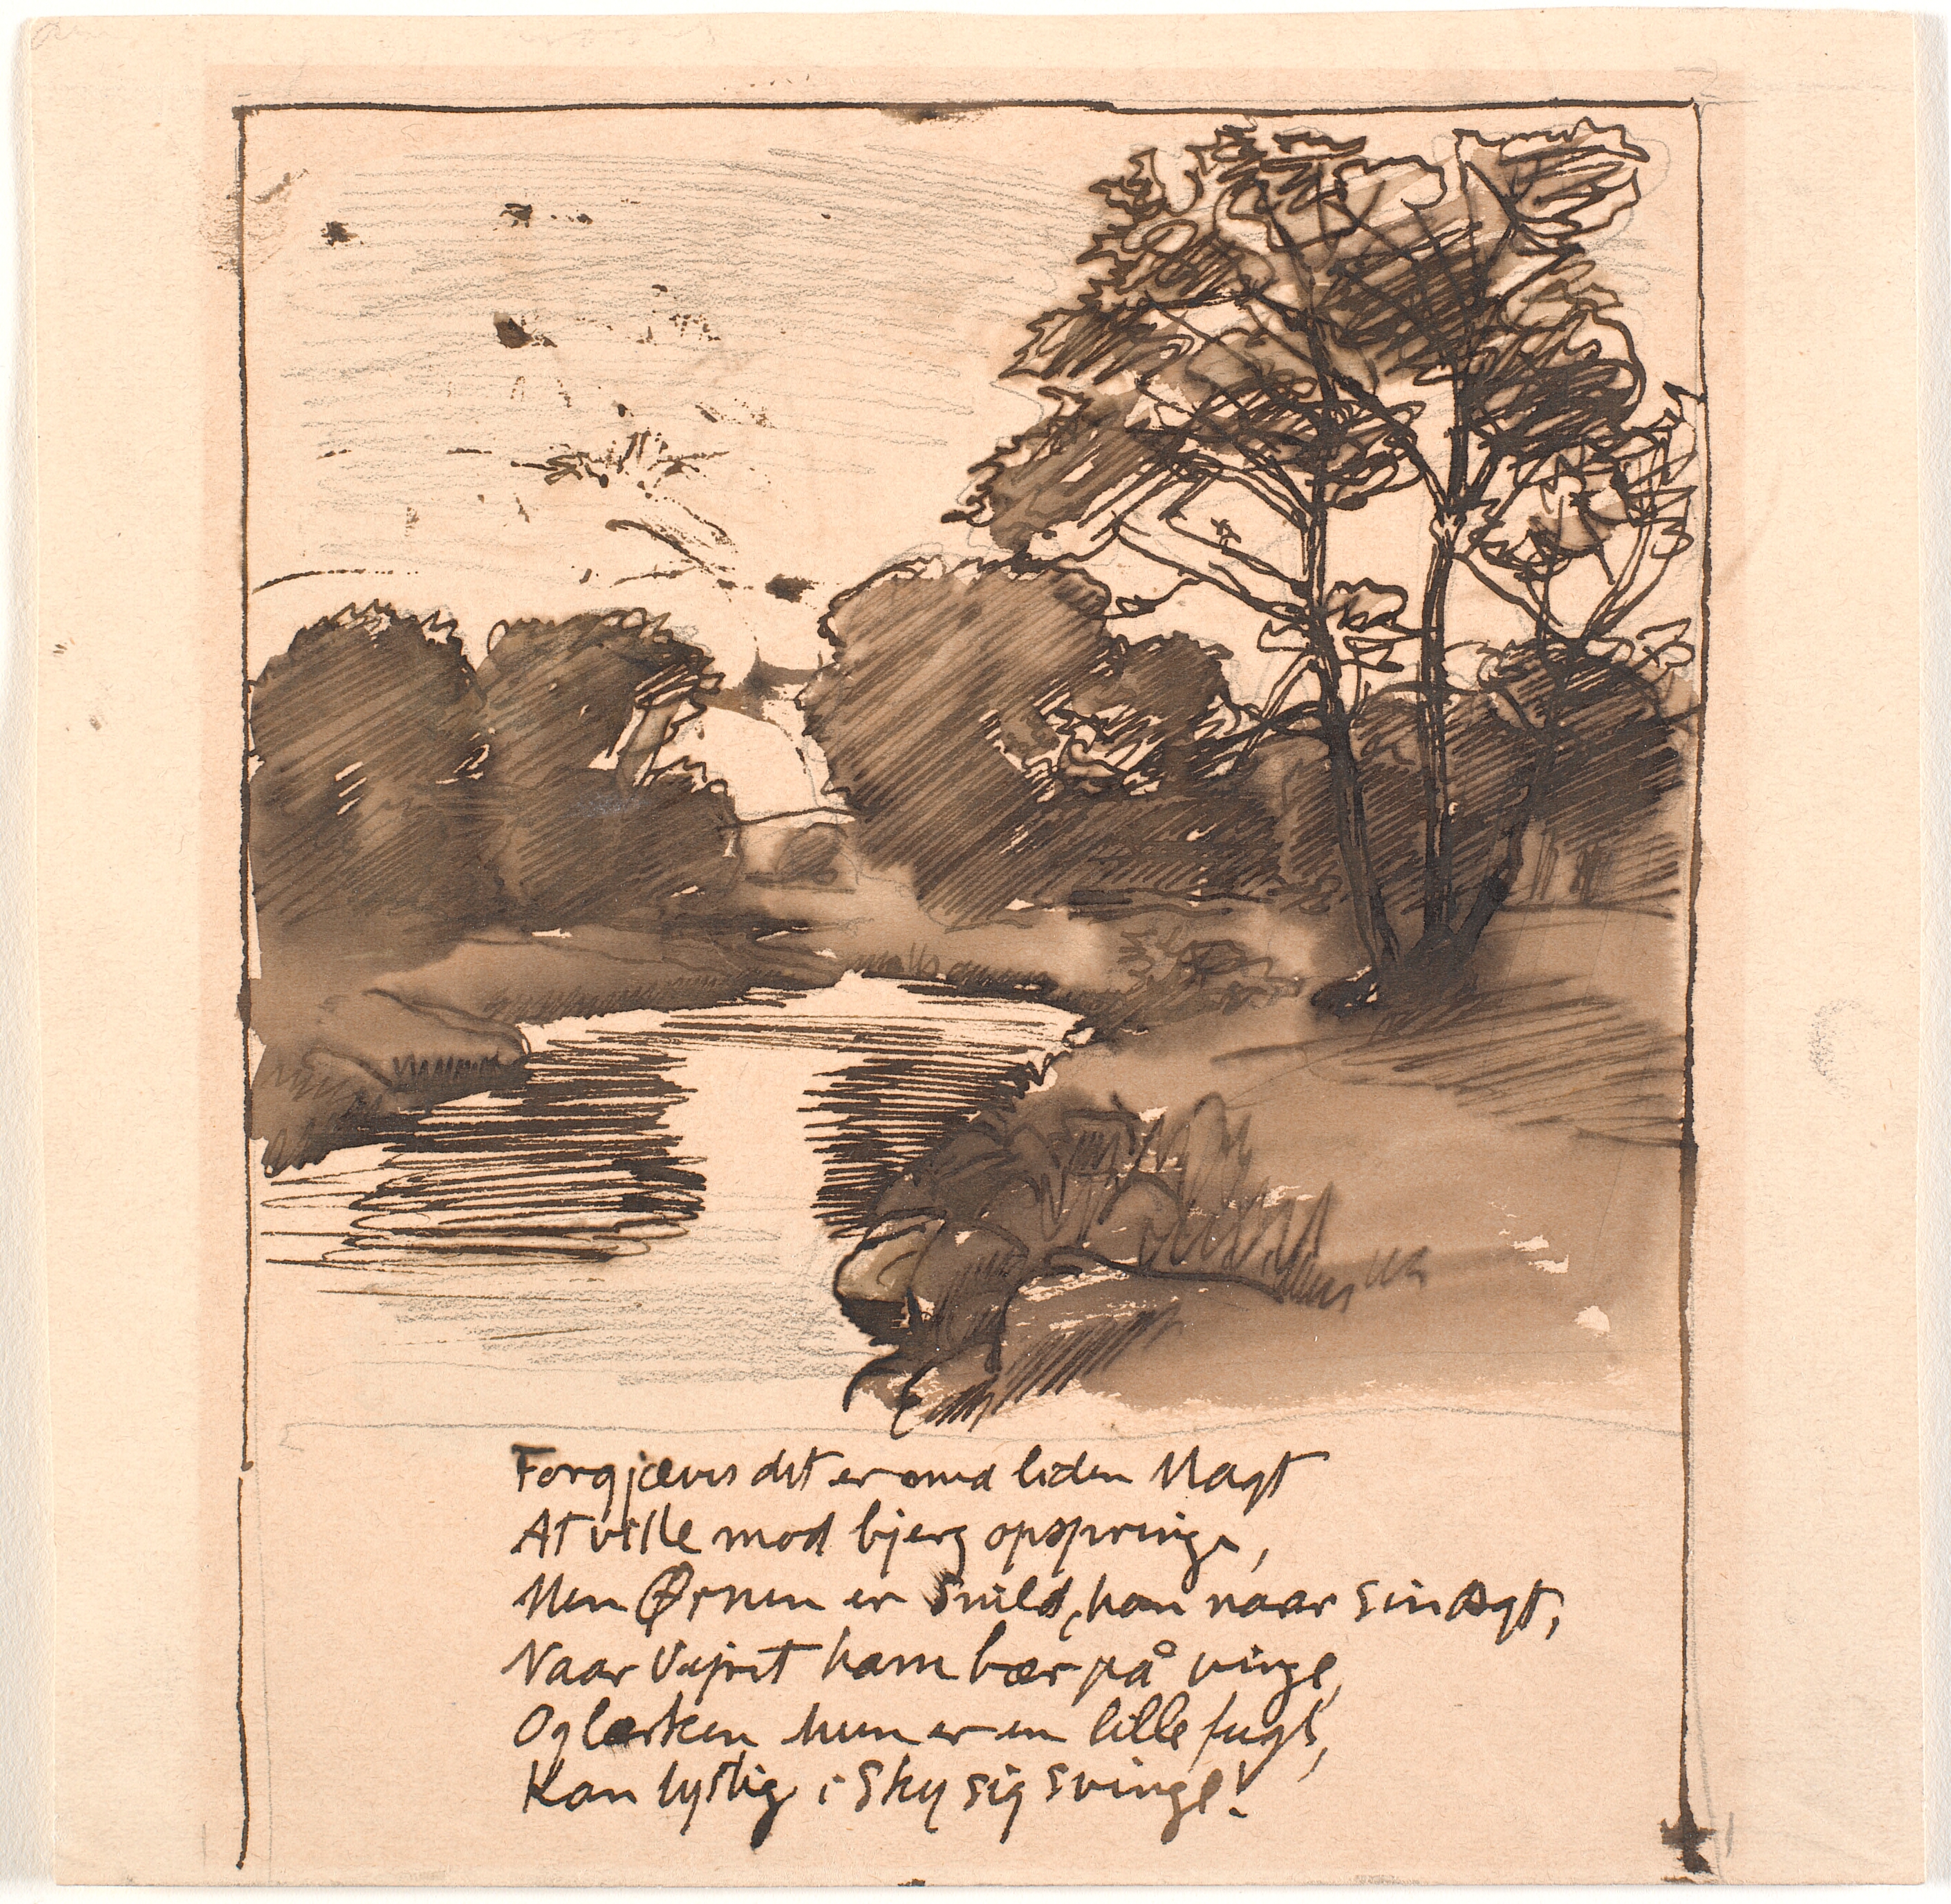 Forgjæves det er med liden Magt
At ville mod bjerg opspringe,
Men Ørnen er snild, han naar sin Agt,
Naar Vejret ham bær på vinge,
Og lærken hun er en lille fugl,
Kan lystig i Sky sig svinge!